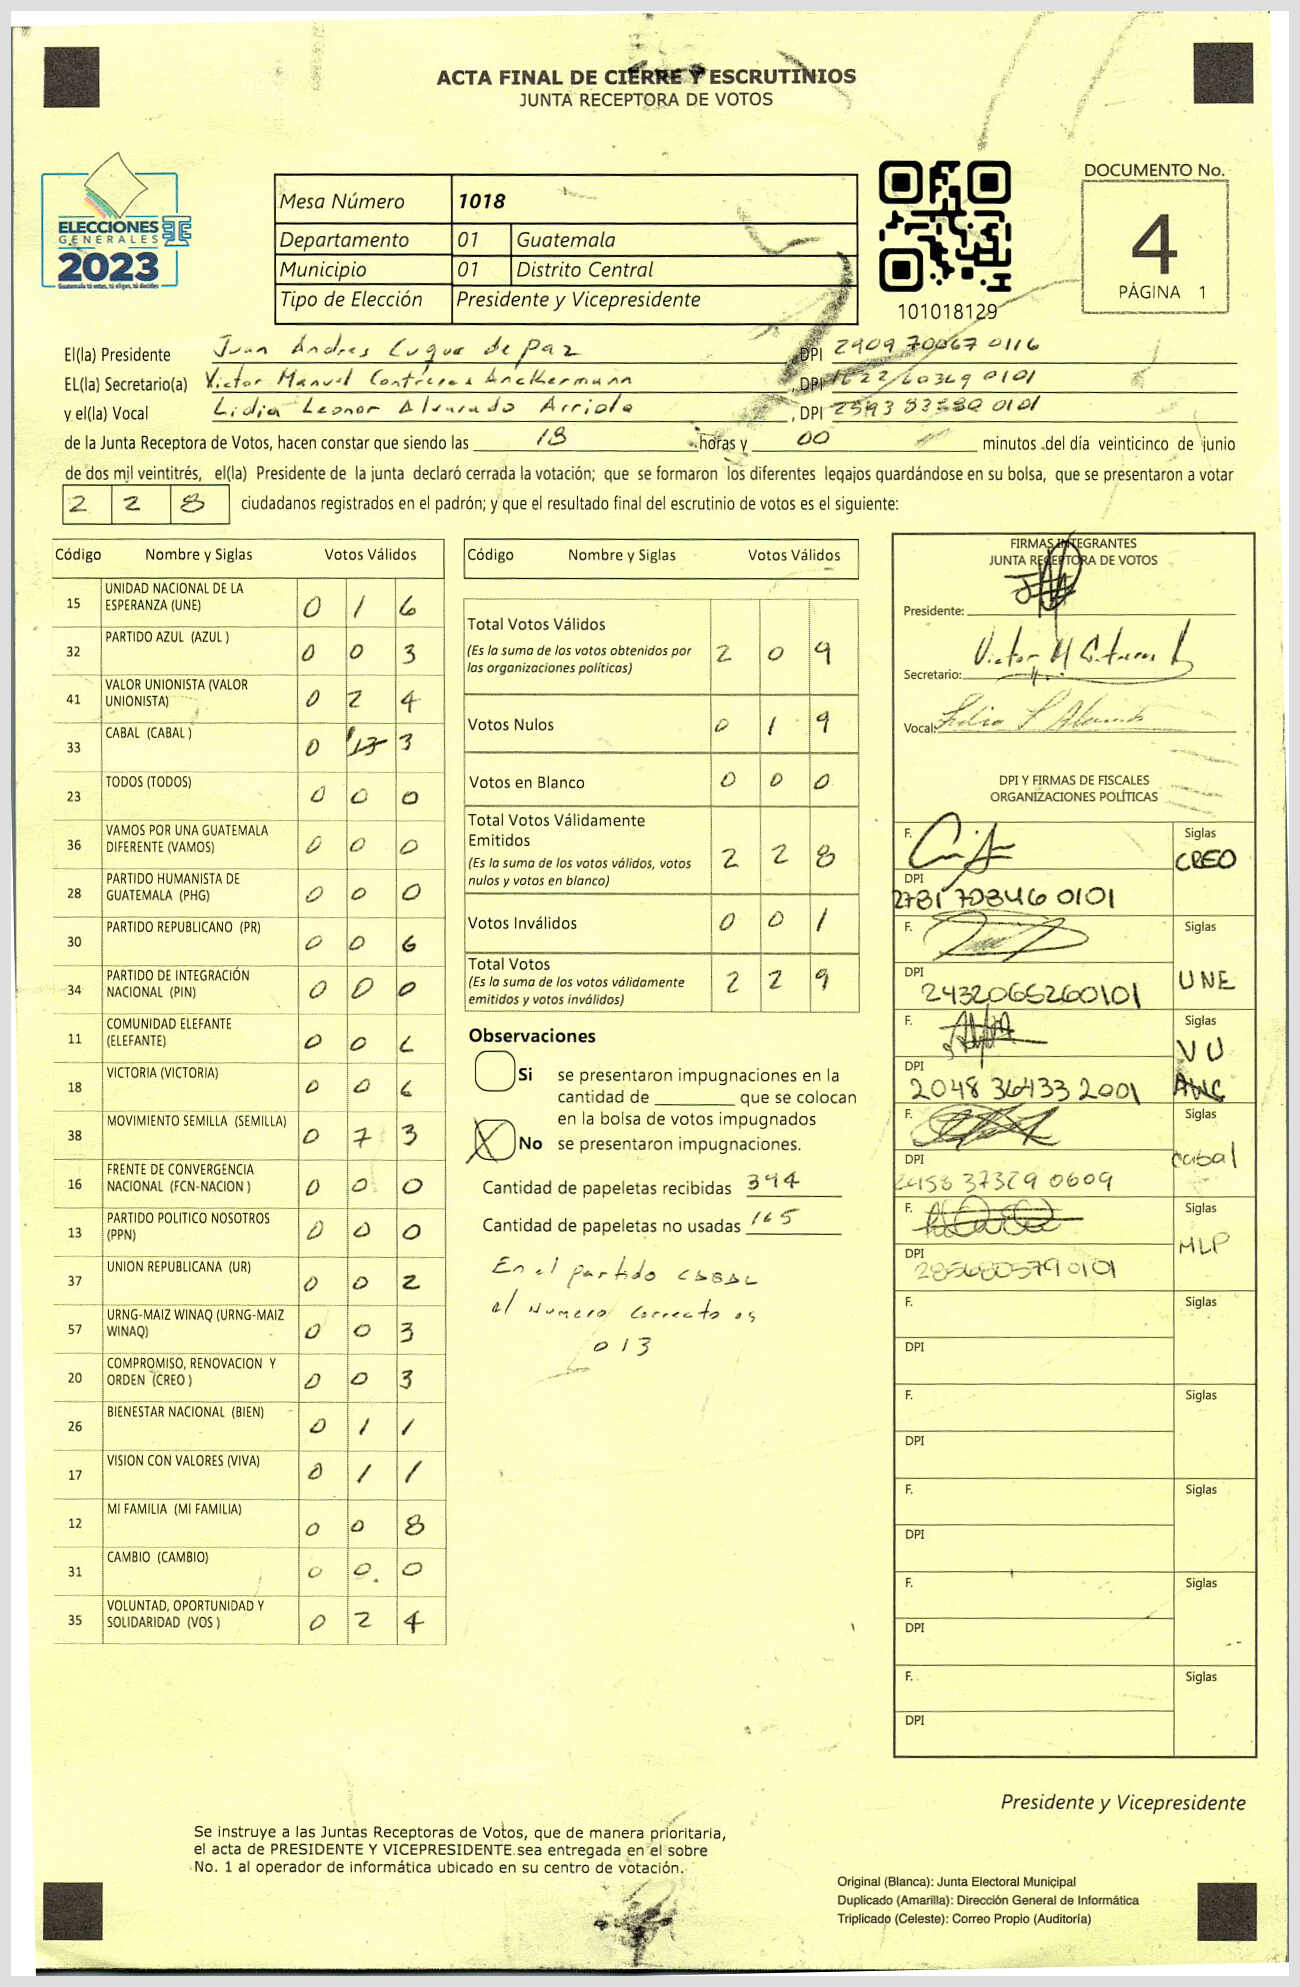 ACTA FINAL DE CIERRE Y ESCRUTINIOS
JUNTA RECEPTORA DE VOTOS
ELECCIONES
GENERALES
2023
Guatemala tú votas, tú eliges, tú decides
Mesa Número 1018
Departamento 01 Guatemala
Municipio 01 Distrito Central
Tipo de Elección Presidente y Vicepresidente
101018129
DOCUMENTO No.
4
PÁGINA 1
El(la) Presidente Juan Andres Luque de Paz, DPI 2909 70067 0116
EL(la) Secretario(a) Victor Manuel Contreras Anckermann, DPI 1622 60369 0101
y el(la) Vocal Lidia Leonor Alvarado Arriola, DPI 2593 83580 0101
de la Junta Receptora de Votos, hacen constar que siendo las 18 horas y 00 minutos del día veinticinco de junio
de dos mil veintitrés, el(la) Presidente de la junta declaró cerrada la votación; que se formaron los diferentes legajos guardándose en su bolsa, que se presentaron a votar
2 2 8 ciudadanos registrados en el padrón; y que el resultado final del escrutinio de votos es el siguiente:
Código Nombre y Siglas Votos Válidos
15 UNIDAD NACIONAL DE LA ESPERANZA (UNE) 0 1 6
32 PARTIDO AZUL (AZUL ) 0 0 3
41 VALOR UNIONISTA (VALOR UNIONISTA) 0 2 4
33 CABAL (CABAL ) 0 13 3
23 TODOS (TODOS) 0 0 0
36 VAMOS POR UNA GUATEMALA DIFERENTE (VAMOS) 0 0 0
28 PARTIDO HUMANISTA DE GUATEMALA (PHG) 0 0 0
30 PARTIDO REPUBLICANO (PR) 0 0 6
34 PARTIDO DE INTEGRACIÓN NACIONAL (PIN) 0 0 0
11 COMUNIDAD ELEFANTE (ELEFANTE) 0 0 6
18 VICTORIA (VICTORIA) 0 0 6
38 MOVIMIENTO SEMILLA (SEMILLA) 0 7 3
16 FRENTE DE CONVERGENCIA NACIONAL (FCN-NACION ) 0 0 0
13 PARTIDO POLITICO NOSOTROS (PPN) 0 0 0
37 UNION REPUBLICANA (UR) 0 0 2
57 URNG-MAIZ WINAQ (URNG-MAIZ WINAQ) 0 0 3
20 COMPROMISO, RENOVACION Y ORDEN (CREO ) 0 0 3
26 BIENESTAR NACIONAL (BIEN) 0 1 1
17 VISION CON VALORES (VIVA) 0 1 1
12 MI FAMILIA (MI FAMILIA) 0 0 8
31 CAMBIO (CAMBIO) 0 0 0
35 VOLUNTAD, OPORTUNIDAD Y SOLIDARIDAD (VOS ) 0 2 4
Código Nombre y Siglas Votos Válidos
Total Votos Válidos 2 0 9
(Es la suma de los votos obtenidos por
las organizaciones políticas)
Votos Nulos 0 1 9
Votos en Blanco 0 0 0
Total Votos Válidamente
Emitidos 2 2 8
(Es la suma de los votos válidos, votos
nulos y votos en blanco)
Votos Inválidos 0 0 1
Total Votos 2 2 9
(Es la suma de los votos válidamente
emitidos y votos inválidos)
Observaciones
Si se presentaron impugnaciones en la
cantidad de ________ que se colocan
en la bolsa de votos impugnados
X No se presentaron impugnaciones.
Cantidad de papeletas recibidas 394
Cantidad de papeletas no usadas 165
En el partido CABAL
el numero correcto es
013
FIRMAS INTEGRANTES
JUNTA RECEPTORA DE VOTOS
Presidente:
Secretario: Victor M Contreras
Vocal: Lidia L Alvarado
DPI Y FIRMAS DE FISCALES
ORGANIZACIONES POLÍTICAS
F. Siglas CREO
DPI 2781 70846 0101
F. Siglas UNE
DPI 2432065260101
F. Siglas VU
DPI 2048 36433 2001
F. Siglas cabal
DPI 2458 37329 0609
F. Siglas MLP
DPI 2856805790101
F. Siglas
DPI
F. Siglas
DPI
F. Siglas
DPI
F. Siglas
DPI
F. Siglas
DPI
Presidente y Vicepresidente
Se instruye a las Juntas Receptoras de Votos, que de manera prioritaria,
el acta de PRESIDENTE Y VICEPRESIDENTE sea entregada en el sobre
No. 1 al operador de informática ubicado en su centro de votación.
Original (Blanca): Junta Electoral Municipal
Duplicado (Amarilla): Dirección General de Informática
Triplicado (Celeste): Correo Propio (Auditoría)